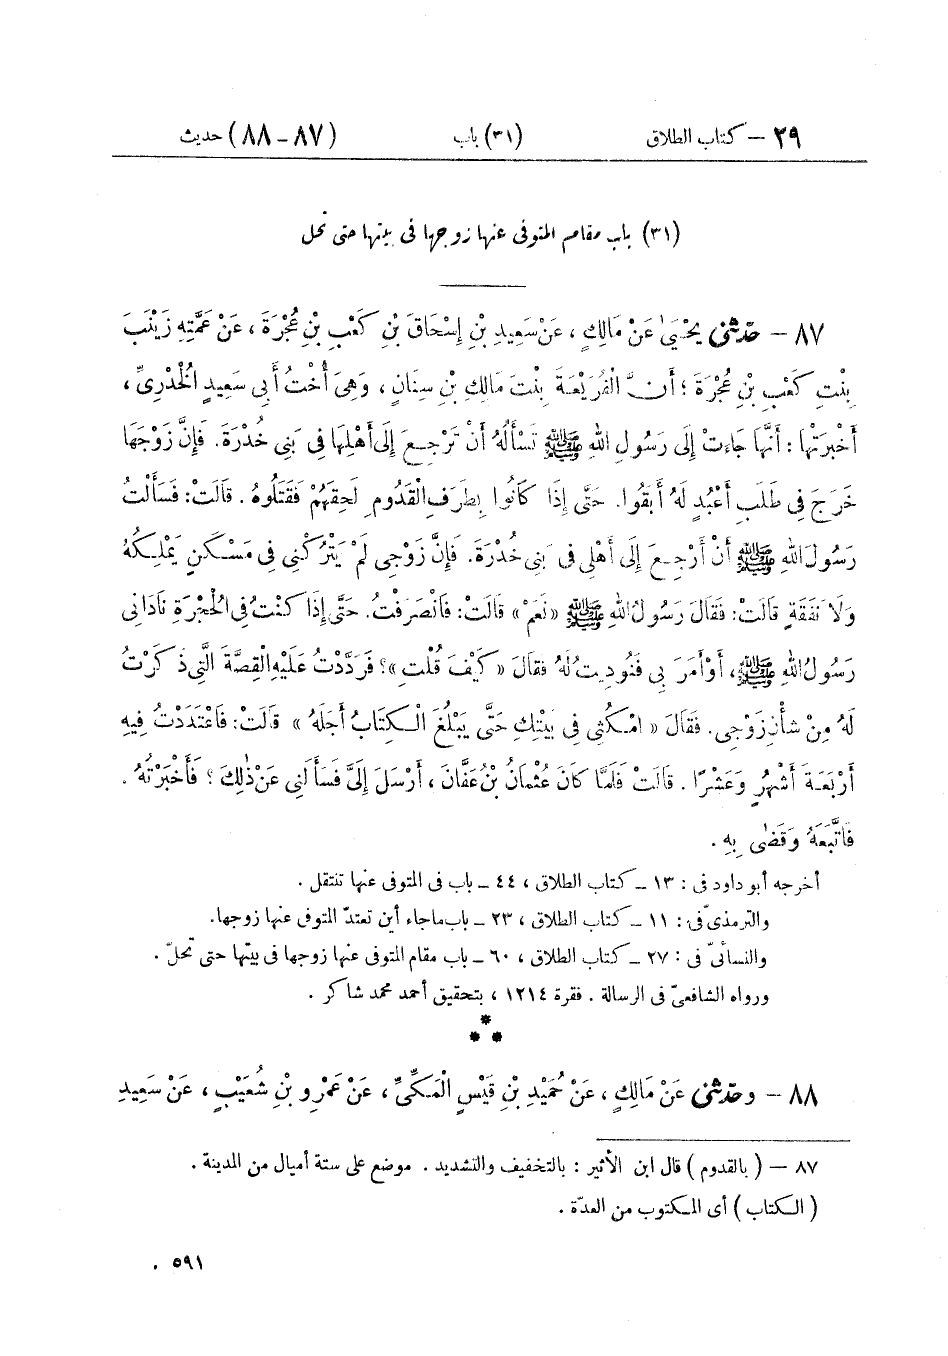 ٢٩ – كتاب الطلاق (٣١) باب (٨٧ – ٨٨) حديث
(٣١) باب مقام المتوفى عنها زوجها فى بيتها حتى تحل
٨٧ – حَدَّثَنِى يَحْيَىٰ عَنْ مَالِكٍ ، عَنْ سَعِيدِ بْنِ إِسْحَاقَ بْنِ كَعْبِ بْنِ عُجْرَةَ ، عَنْ عَمَّتِهِ زَيْنَبَ
بِنْتِ كَعْبِ بْنِ عُجْرَةَ ؛ أَنَّ الْفُرَيْعَةَ بِنْتَ مَالِكِ بْنِ سِنَانٍ ، وَهِىَ أُخْتُ أَبِى سَعِيدٍ الْخُدْرِىِّ ،
أَخْبَرَتْهَا : أَنَّهَا جَاءَتْ إِلَى رَسُولِ اللهِ ﷺ تَسْأَلُهُ أَنْ تَرْجِعَ إِلَى أَهْلِهَا فِى بَنِى خُدْرَةَ. فَإِنَّ زَوْجَهَا
خَرَجَ فِى طَلَبِ أَعْبُدٍ لَهُ أَبَقُوا. حَتَّى إِذَا كَانُوا بِطَرَفِ الْقَدُومِ لَحِقَهُمْ فَقَتَلُوهُ. قَالَتْ: فَسَأَلْتُ
رَسُولَ اللهِ ﷺ أَنْ أَرْجِعَ إِلَى أَهْلِى فِى بَنِى خُدْرَةَ. فَإِنَّ زَوْجِى لَمْ يَتْرُكْنِى فِى مَسْكَنٍ يَمْلِكُهُ
وَلَا نَفَقَةٍ قَالَتْ: فَقَالَ رَسُولُ اللهِ ﷺ «نَعَمْ» قَالَتْ: فَانْصَرَفْتُ. حَتَّى إِذَا كُنْتُ فِى الْحُجْرَةِ نَادَانِى
رَسُولُ اللهِ ﷺ، أَوْ أَمَرَ بِى فَنُودِيتُ لَهُ فَقَالَ «كَيْفَ قُلْتِ»؟ فَرَدَّدْتُ عَلَيْهِ الْقِصَّةَ الَّتِى ذَكَرْتُ
لَهُ مِنْ شَأْنِ زَوْجِى. فَقَالَ «امْكُثِى فِى بَيْتِكِ حَتَّى يَبْلُغَ الْكِتَابُ أَجَلَهُ» قَالَتْ: فَاعْتَدَدْتُ فِيهِ
أَرْبَعَةَ أَشْهُرٍ وَعَشْرًا. قَالَتْ فَلَمَّا كَانَ عُثْمَانُ بْنُ عَفَّانَ ، أَرْسَلَ إِلَىَّ فَسَأَلَنِى عَنْ ذٰلِكَ ؟ فَأَخْبَرْتُهُ.
فَاتَّبَعَهُ وَقَضَى بِهِ.
أخرجه أبو داود فى : ١٣ – كتاب الطلاق ، ٤٤ – باب فى المتوفى عنها تنتقل .
والترمذىّ فى : ١١ – كتاب الطلاق ، ٢٣ – باب ماجاء أين تعتدّ المتوفى عنها زوجها.
والنسائىّ فى : ٢٧ – كتاب الطلاق ، ٦٠ – باب مقام المتوفى عنها زوجها فى بيتها حتى تحلّ .
ورواه الشافعىّ فى الرسالة . فقرة ١٢١٤ ، بتحقيق أحمد محمد شاكر .
*
* *
٨٨ – وحَدَّثَنِى عَنْ مَالِكٍ ، عَنْ حُمَيْدِ بْنِ قَيْسٍ الْمَكِّىِّ ، عَنْ عَمْرِو بْنِ شُعَيْبٍ ، عَنْ سَعِيدِ
٨٧ – (بالقدوم) قال ابن الأثير : بالتخفيف والتشديد . موضع على ستة أميال من المدينة .
(الكتاب) أى المكتوب من العدّة .
٥٩١ .